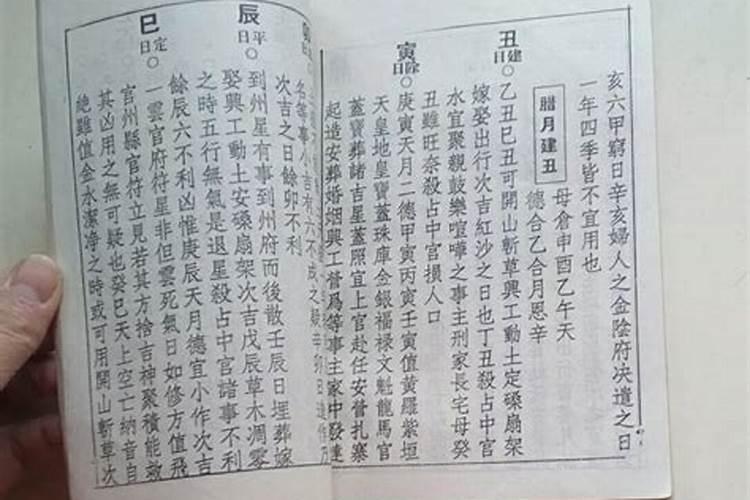 亥六甲窮日辛亥婦人之金陰府决遣之日
一年四季皆不宜用也
臘月建丑
母倉申酉乙午天
德合乙合月恩辛
丑建日○乙丑巳丑可開山斬草興工動土定磉扇架
嫁娶出行次吉紅沙之日也丁丑殺占中宮
水宜聚親鼓樂喧嘩之事主刑家長宅母癸
丑雖旺奈殺占中宮損人口
寅除日○庚寅天月二德甲寅丙寅壬寅值黄羅紫垣
天皇地皇寶蓋珠庫金銀福禄文魁龍馬官
蓋寶葬諸吉星蓋照宜上官赴任安營扎寨
起造安葬婚烟興工營爲等事主家中發達
名等事小吉有六不成之疑辛卯日造作乃
次吉之日餘卯不利
辰平日○到州星有事到州府而後散壬辰日埋葬嫁
娶興工動土安磉扇架次吉戊辰草木凋零
之時五行無氣是退星殺占中宮諸事不利
餘辰六不利凶惟庚辰天月德宜小作次吉
巳定日○一雲官府符星非但雲死氣日如修方值飛
官州縣官符立見若其方捨吉神聚積能敵
其凶用之無可疑也癸巳天上空亡納音自
絶雖值金水潔净之時或可用開山斬草次